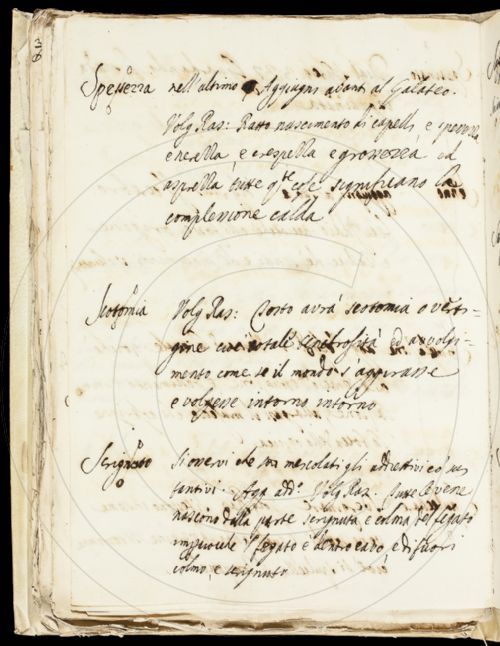 Spessezza nell'ultimo Aggiugni avanti al Galateo.
Volg Ras: Ratto nascimento di capelli, e spessezza
e nerezza, e crespezza e grossezza, ed
asprezza tutte q.te cose significano la
complessione calda
Scotomia Volg Ras: Costo avrà scotomia o verti-
gine cioè totale ed avvolgi-
mento come se il mondo s'aggirasse
e volgesse intorno intorno
Scrignuto Si osservi che son mescolati gli addiettivi co' sus
tantivi. Agg. add.o Volg Ras. Tutte le vene
nascono dalla parte scrignuta e colma del fegato
imperocchè il fegato è dentro cavo, e di fuori
colmo, e scrignuto